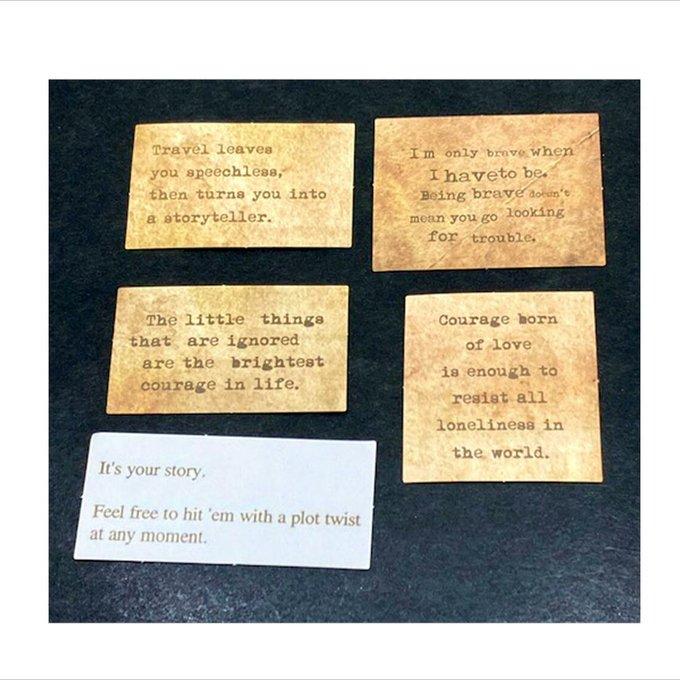 Travel leaves
you speechless,
then turns you into
a storyteller.
Im only brave when
I haveto be.
Being brave doesn't
mean you go looking
for trouble.
The little things
that are ignored
are the brightest
courage in life.
Courage born
of love
is enough to
resist all
loneliness in
the world.
It's your story.
Feel free to hit 'em with a plot twist
at any moment.